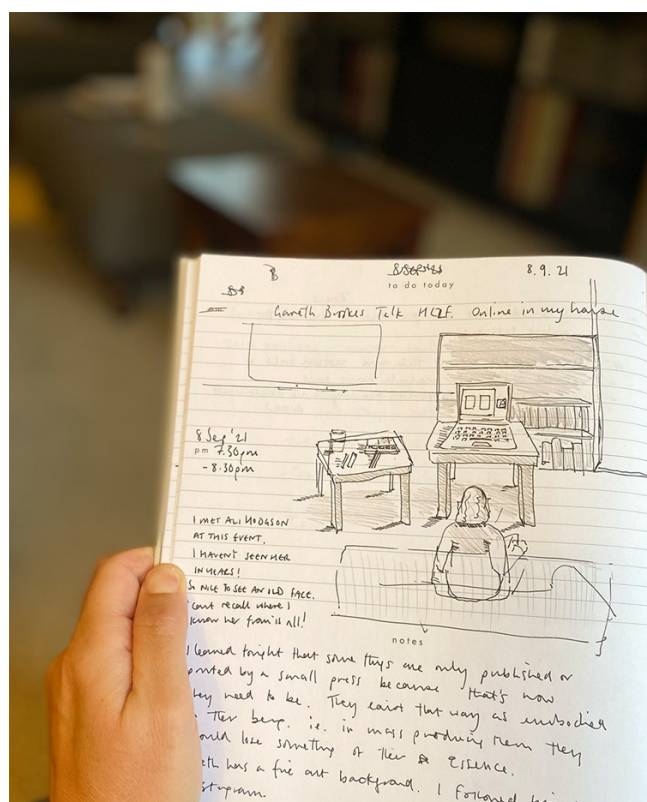 8.9.21
to do today
Gareth Brookes Talk Online in my house
8 Sep '21
pm 7.30pm
- 8.30pm
I MET ALI HODGSON
AT THIS EVENT.
I HAVEN'T SEEN HER
IN YEARS!
SO NICE TO SEE AN OLD FACE.
cant recall where I
know her from is all!
notes
I learned tonight that some things are only published or
printed by a small press because that's how
they need to be. They exist that way as embodied
in their being. i.e. in mass producing them they
would lose something of their essence.
has a fine art background. I followed